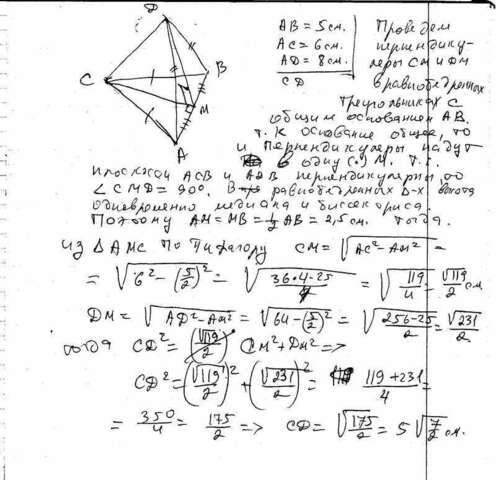 D
C
B
M
A
AB = 5 см.
AC = 6 см.
AD = 8 см.
CD
Проведем
перпендику-
ляры CM и DM
в равнобедренных
треугольниках с
общим основанием AB.
т.к основание общее, то
и перпендикуляры падут
в одну (.) M. т.к.
плоскости ACB и ADB перпендикулярны, то
∠CMD = 90°. В равнобедренных Δ-х высота
одновременно медиана и биссектриса.
Поэтому AM = MB = 1/2 AB = 2,5 см. Тогда.
из Δ AMC по Пифагору CM = √(AC² - AM²) =
= √(6² - (5/2)²) = √((36·4-25)/4) = √(119/4) = √119/2 см
DM = √(AD² - AM²) = √(64 - (5/2)²) = √((256-25)/4) = √231/2
тогда CD² = CM² + DM² =>
CD² = (√119/2)² + (√231/2)² = (119+231)/4 =
= 350/4 = 175/2 => CD = √(175/2) = 5√(7/2) см.